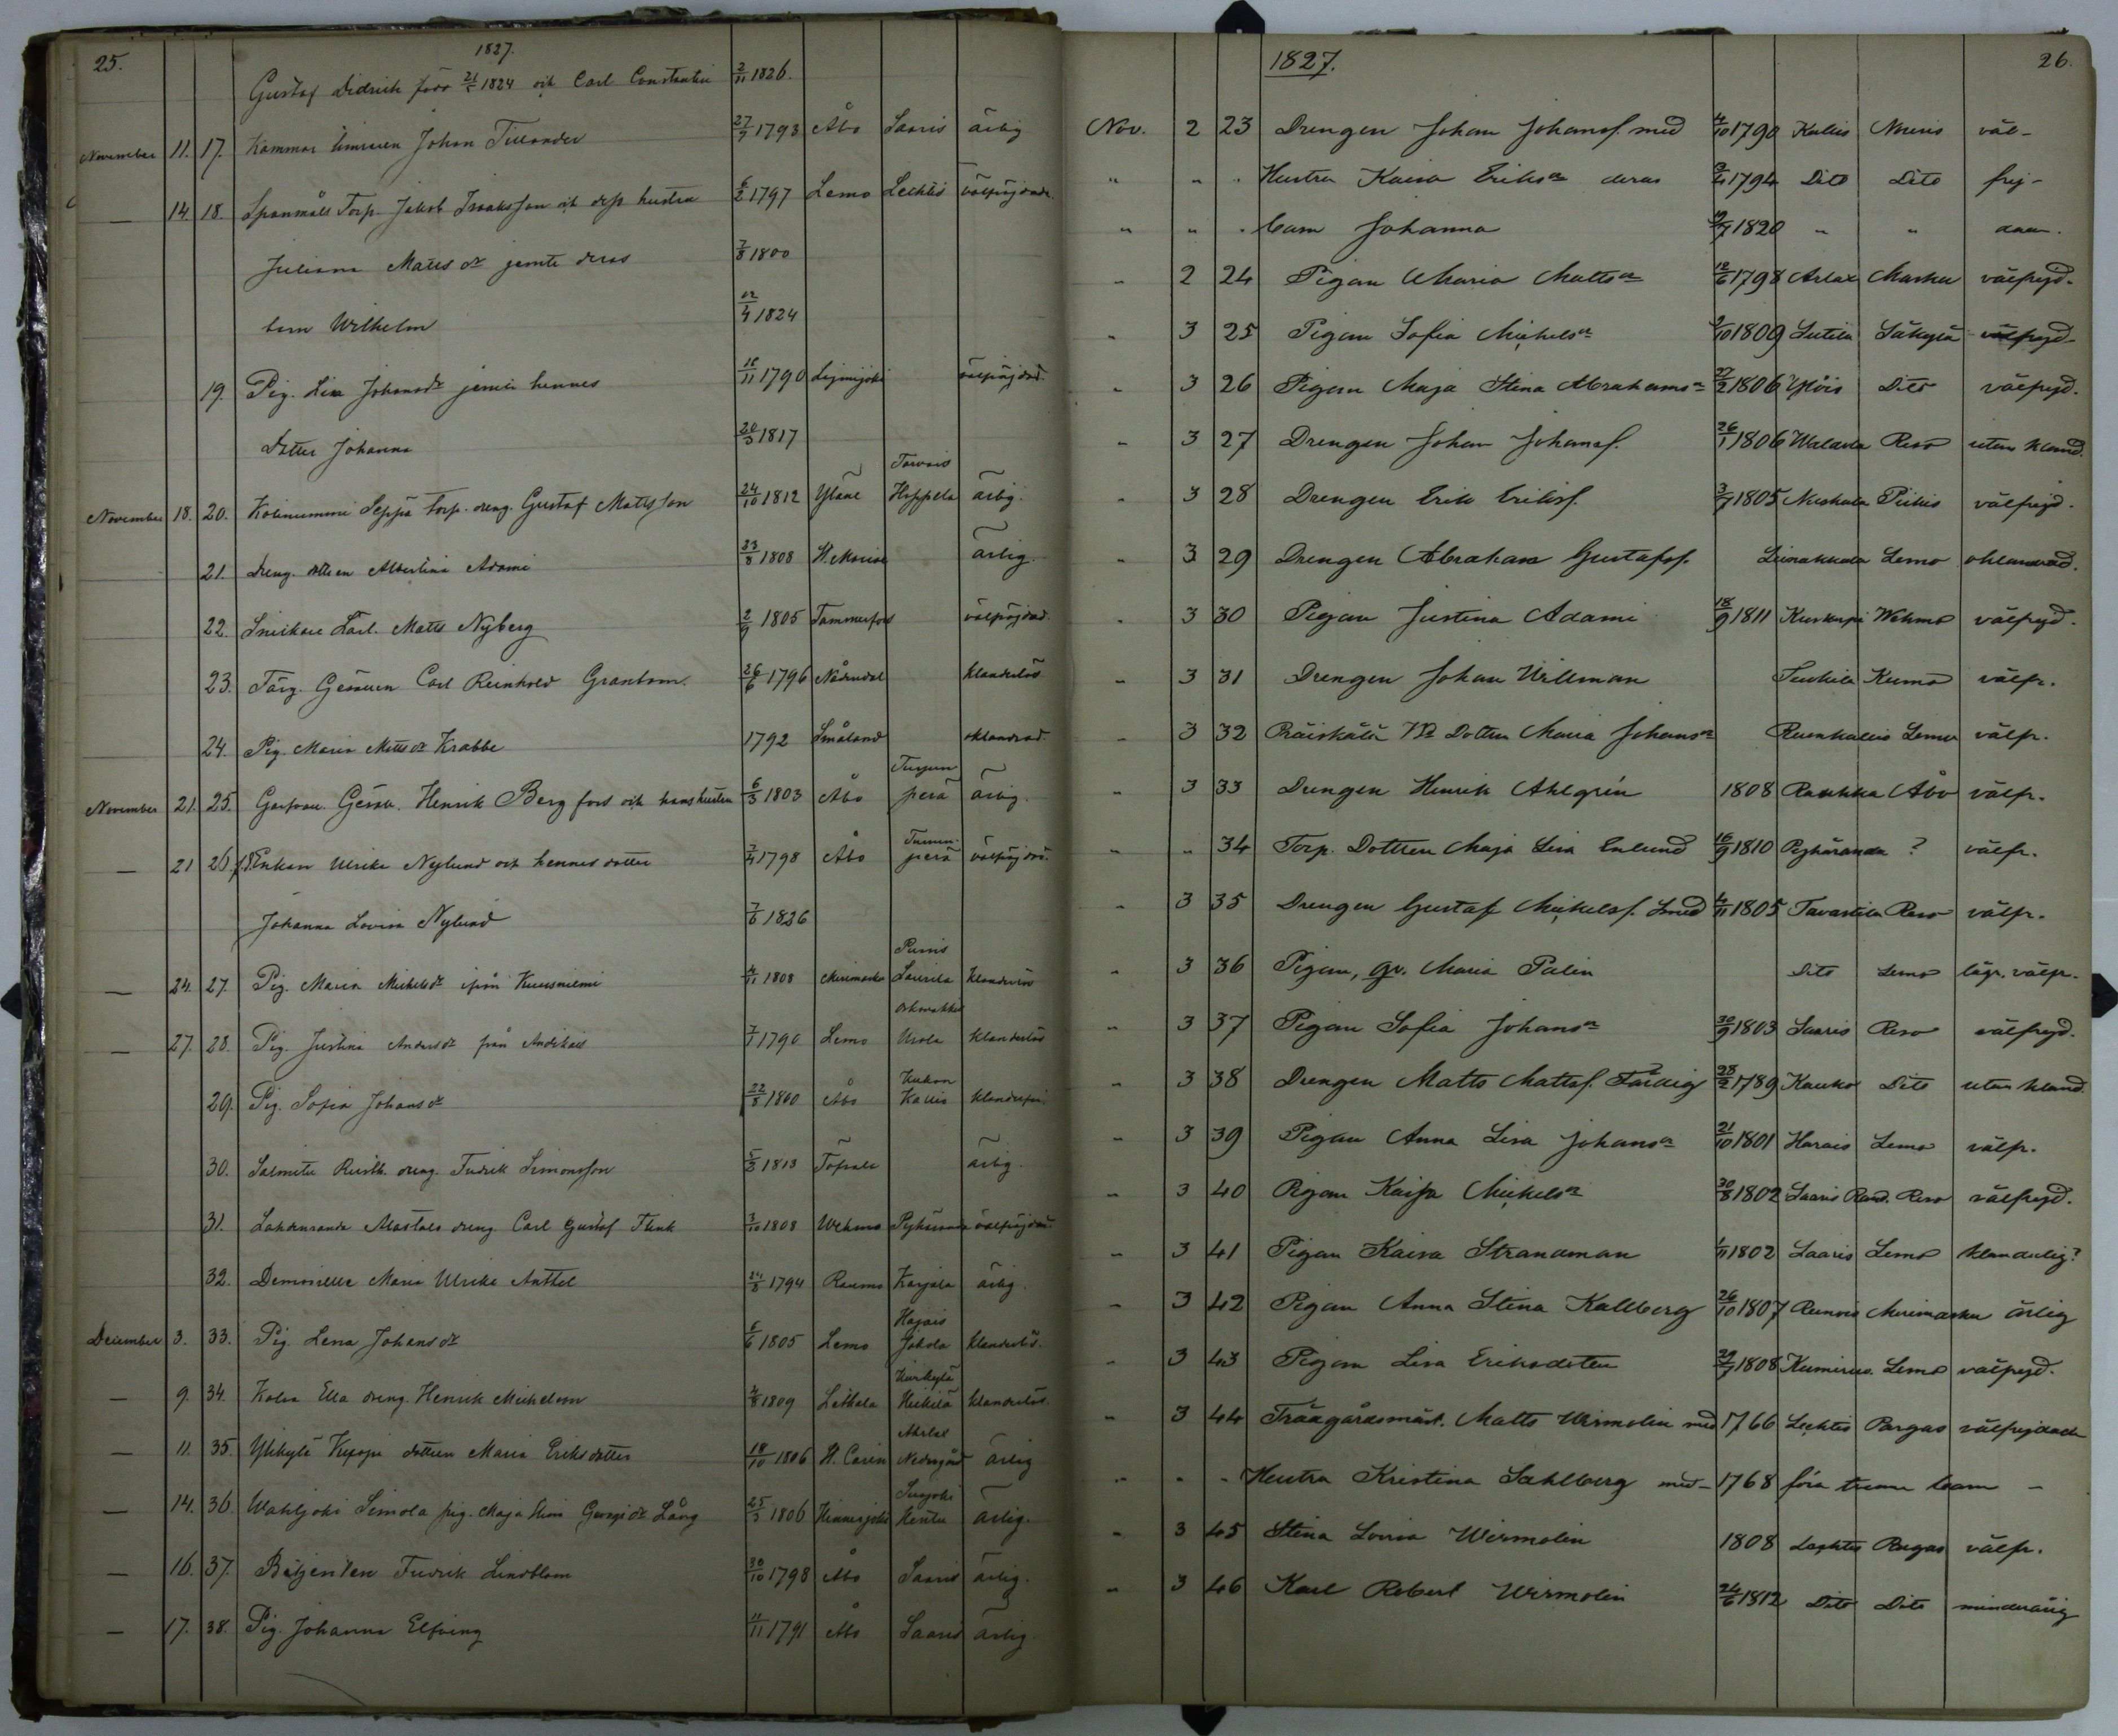 25.
1827.
Gustaf Didrich född 21/5 1824 och Carl Constantin 2/11 1826.
November 11. 17. Kammar Johan Tillander 27/9 1793 Åbo Saaris ärlig
— 14. 18. Spanmåls Torp. Jakob Isaksson och dess hustru 6/2 1797 Lemo Lechtis välfrejdade
Juliana Matts dr jemte deras 7/8 1800
barn Wilhelm 12/4 1824
19. Pig. Lisa Johans dr jemte hennes 18/11 1790 välfrejdad.
Dotter Johanna 20/3 1817
November 18. 20. Kolinummi Seppä torp. dreng. Gustaf Mattsson 24/10 1812 Yläne Tarvais Hyppela ärlig.
21. Dreng. dottren Albertina Adami 23/8 1808 St. Marie ärlig.
22. Snickare Lärl. Matts Nyberg 2/9 1805 Tammerfors välfrejdad.
23. Färg. Gesällen Carl Reinhold Granbom. 26/6 1796 Nådendal klanderlös
24. Pig. Maria Matts dr Krabbe 1792 Småland oklandrad.
November 21. 25. Garfvare Gesäll. Henrik Bergfors och hans hustru 6/3 1803 Åbo perä ärlig.
— 21 26. Enkan Ulrika Nylund och hennes dotter 7/4 1798 Åbo perä välfrejdad
Johanna Lovisa Nylund 7/6 1826
— 24. 27. Pig. Maria Michels dr ifrån Kuusniemi 4/11 1808 Merimasku Laurila klanderlös
— 27. 28. Pig. Justina Anders dr från 7/7 1790 Lemo klanderlös
29. Pig. Sofia Johans dr 22/8 1800 Åbo Kallis
30. Salmitu Rusth. dreng. Fredrik Simonsson 5/2 1813 Töfsala ärlig.
31. dreng Carl Gustaf Flink 3/10 1808 Wehmo Pyhäranda välfrejdad.
32. Demoiselle Maria Ulrika Anttel 24/8 1794 Raumo Karjala ärlig.
December 3. 33. Pig. Lena Johans dr 6/6 1805 Lemo Hajais Jokela klanderlös.
— 9. 34. Kolva Ella dreng. Henrik Michelsson 4/8 1809 Letkala Heikilä klanderlös.
— 11. 35. Ylikylä dottren Maria Eriksdotter 18/10 1806 St. Carin Nedergård ärlig
— 14. 36. Wahljoki Simola pig. Maja Georgs dr Lång 25/3 1806 Hinnerjoki ärlig.
— 16. 37. Betjenten Fredrik Lindblom 30/10 1798 Åbo Saaris ärlig.
— 17. 38. Pig. Johanna Elfving 11/11 1791 Åbo Saaris ärlig
1827.
26.
Nov. 2 23 Drengen Johan Johansf. med 4/10 1790 Kullis Nousis väl-
" " . Hustru Kaisa Eriksdr deras 2/4 1794 Dito Dito frej-
" " . barn Johanna 19/7 1820 " " dade.
" 2 24 Pigan Maria Mattsdr 12/6 1798 Arlax Masku välfrejd.
" 3 25 Pigan Sofia Michelsdr 2/10 1809 Lutila Säkylä välfrejd.
" 3 26 Pigan Maja Stina Abrahamsdr 22/2 1806 Ylöis Dito välfrejd.
" 3 27 Drengen Johan Johansf. 26/1 1806 Waldola Reso utan kland.
" 3 28 Drengen Erik Eriksf. 3/7 1805 Niuskala Piikis välfrejd.
" 3 29 Drengen Abraham Gustafsf. Leinakkala Lemo oklandrad.
" 3 30 Pigan Justina Adami 18/9 1811 Kuskopi Wehmo välfrejd.
" 3 31 Drengen Johan Willman Teukila Kumo välfr.
" 3 32 Präiskälä Dottren Maria Johansdr Ruonkallio Lemo välfr.
" 3 33 Drengen Henrik Ahlgrén 1808 Raukka Åbo välfr.
" " 34 Torp. Dottren Maja Lisa Enlund 16/9 1810 Pyhäranda ? välfr.
" 3 35 Drengen Gustaf Michelsf. Smed 4/11 1805 Tavastila Reso välfr.
" 3 36 Pigan, gv. Maria Palin Dito Lemo lägr. välfr.
" 3 37 Pigan Sofia Johansdr 30/9 1803 Saaris Reso välfrejd.
" 3 38 Drengen Matts Mattsf. Färdig 28/2 1789 Kauko Dito utan kland.
" 3 39 Pigan Anna Lisa Johansdr 21/10 1801 Harais Lemo välfr.
" 3 40 Pigan Kaisa Michelsdr 30/8 1802 Saaris Rand. Reso välfrejd.
" 3 41 Pigan Kaisa Strandman 1/11 1802 Saaris Lemo klanderlig?
" 3 42 Pigan Anna Stina Kallberg 26/10 1807 Reunois Merimasku ärlig
" 3 43 Pigan Lisa Eriksdotter 29/7 1808 Lemo välfrejd.
" 3 44 Trädgårdsmäst. Matts Wirmolin med 1766 Lechtis Pargas välfrejdade
" " " Hustru Kristina Sahlberg med 1768 föra tvenne barn —
" 3 45 Stina Lovisa Wirmolin 1808 Lechtis Pargas välfr.
" 3 46 Karl Robert Wirmolin 24/6 1812 Dito Dito minderårig